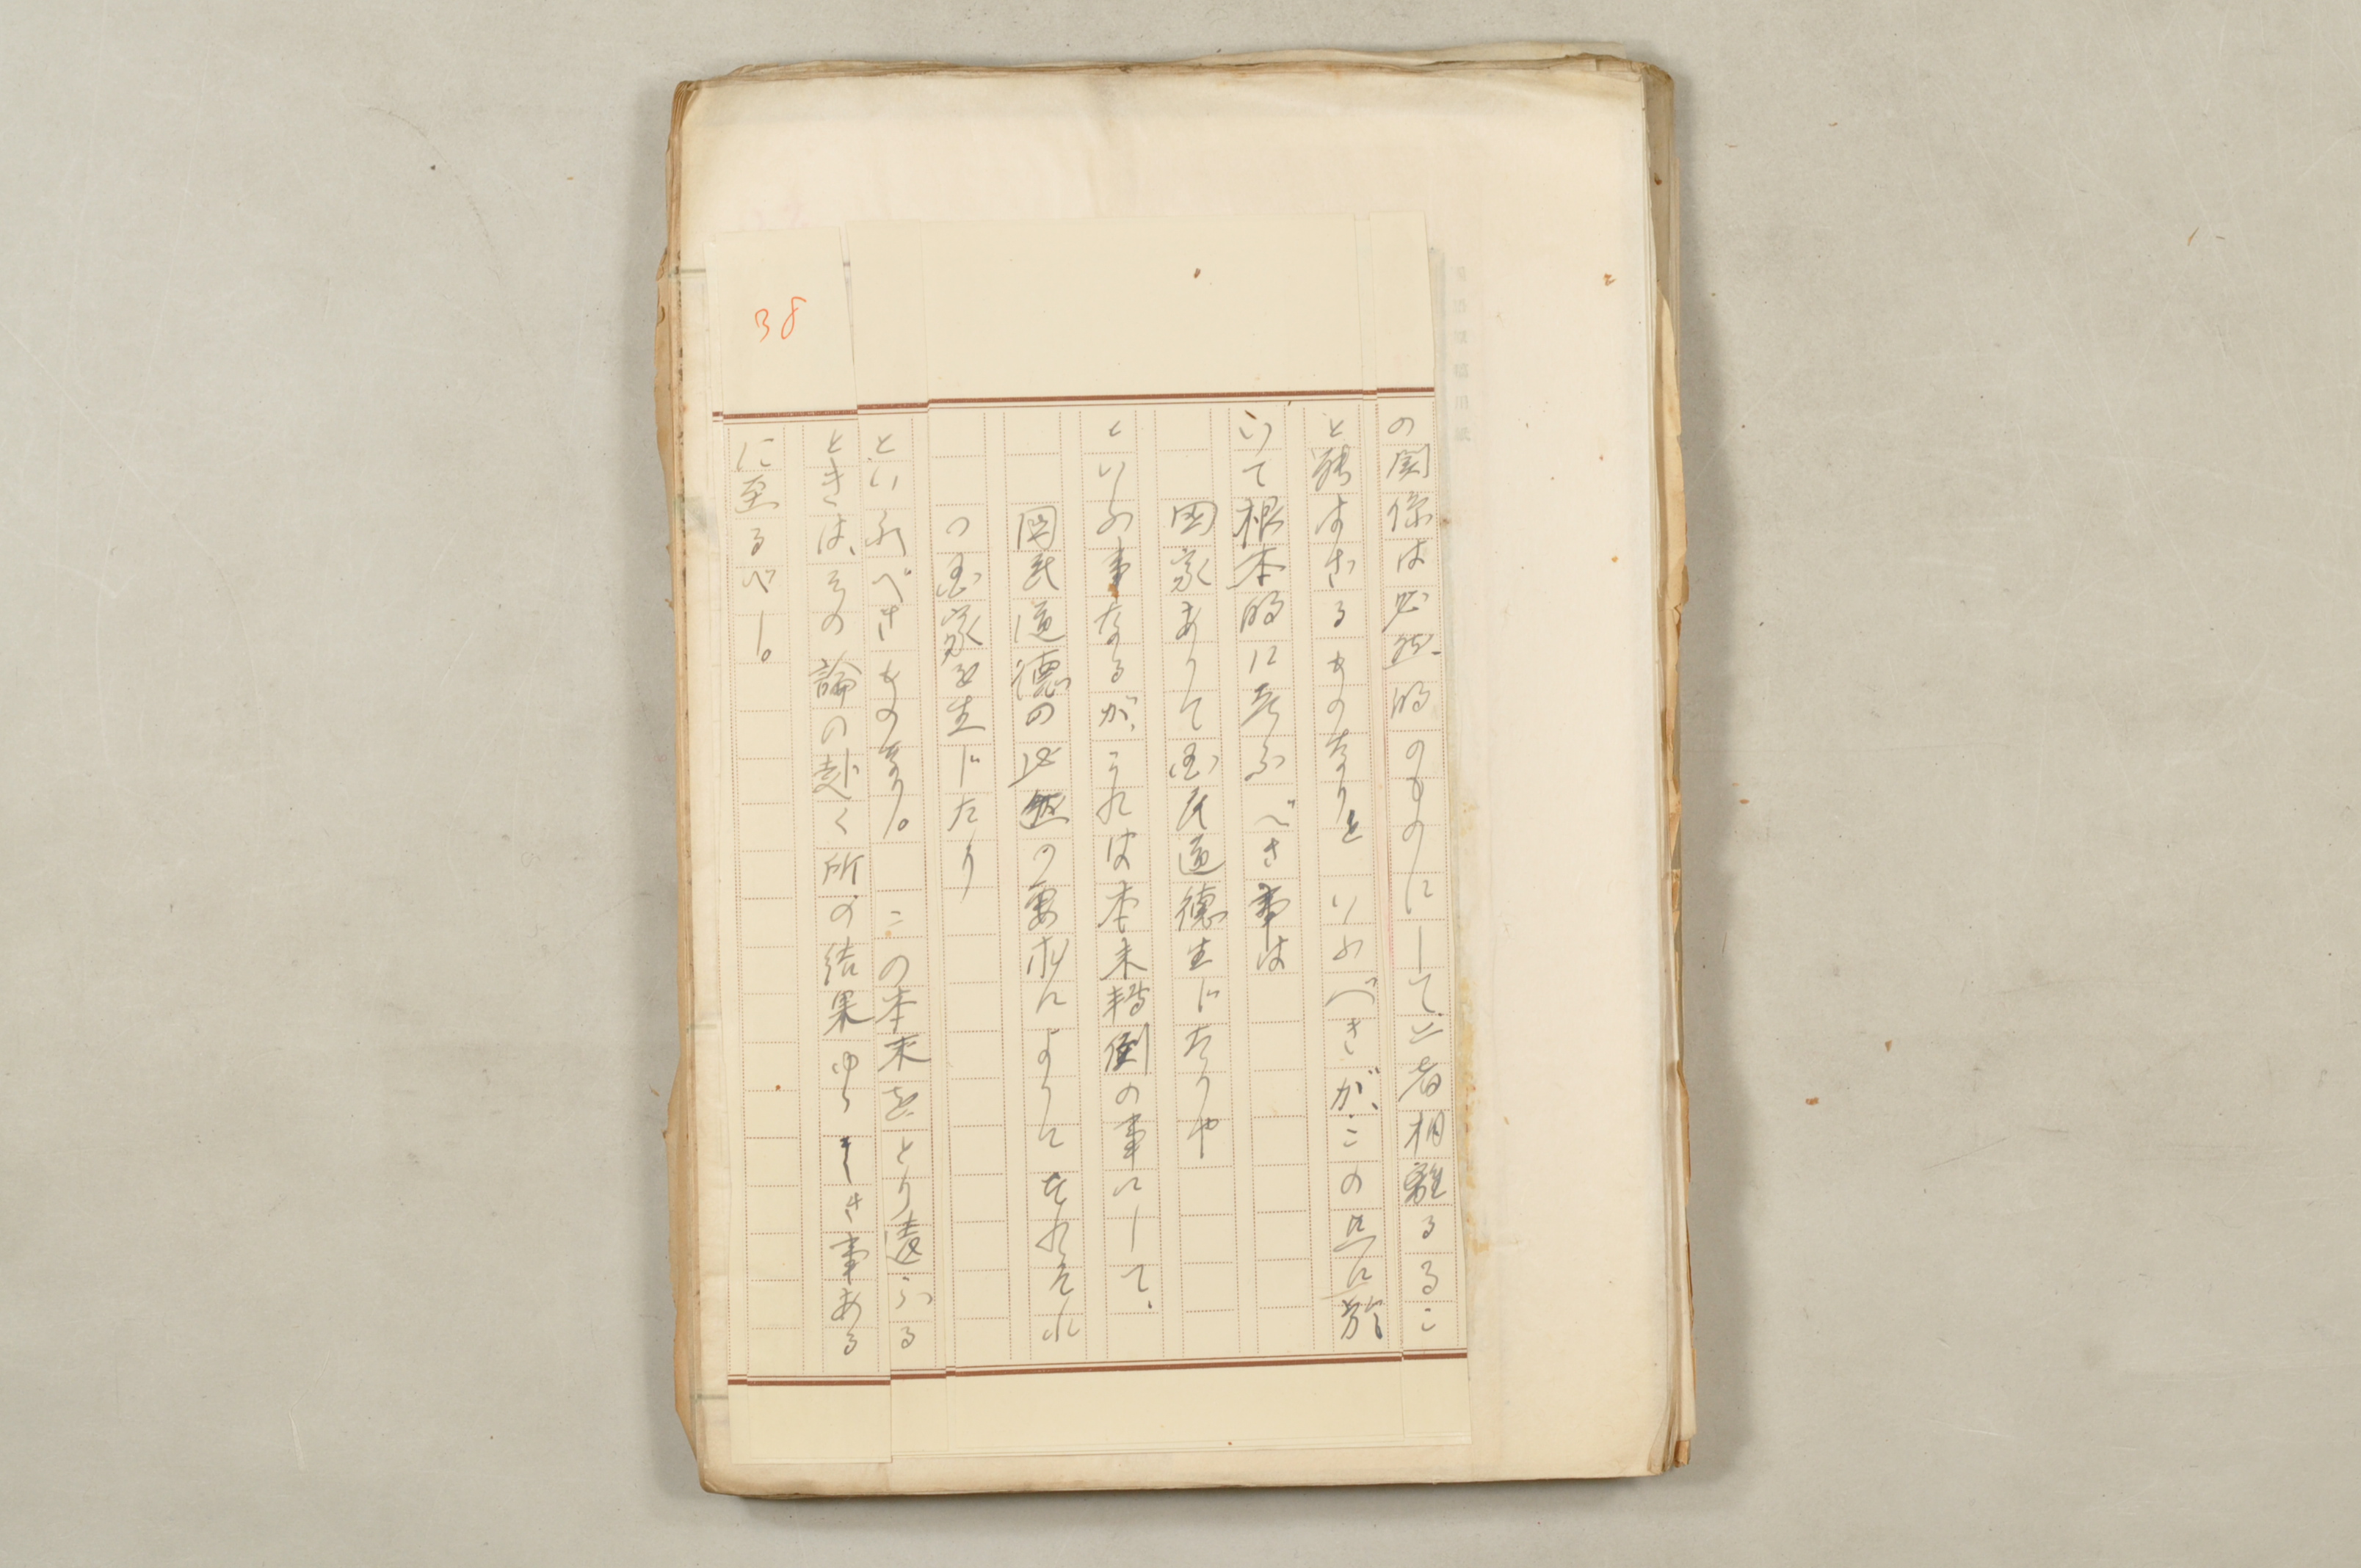 の関係は必然的のものにして、二者相離るるこ
と能はざるものなりといふべきが、この点に於
いて根本的に考ふべき事は
国家ありて国民道徳生じたりや
といふ事なるが、これは本末轉倒の事にして、
国民道徳の必然の要求によりてそれぞれ
の国家を生じたり
といふべきものなり。この本末をとり違へる
ときは、その論の赴く所の結果ゆゝしき事ある
に至るべし。
38